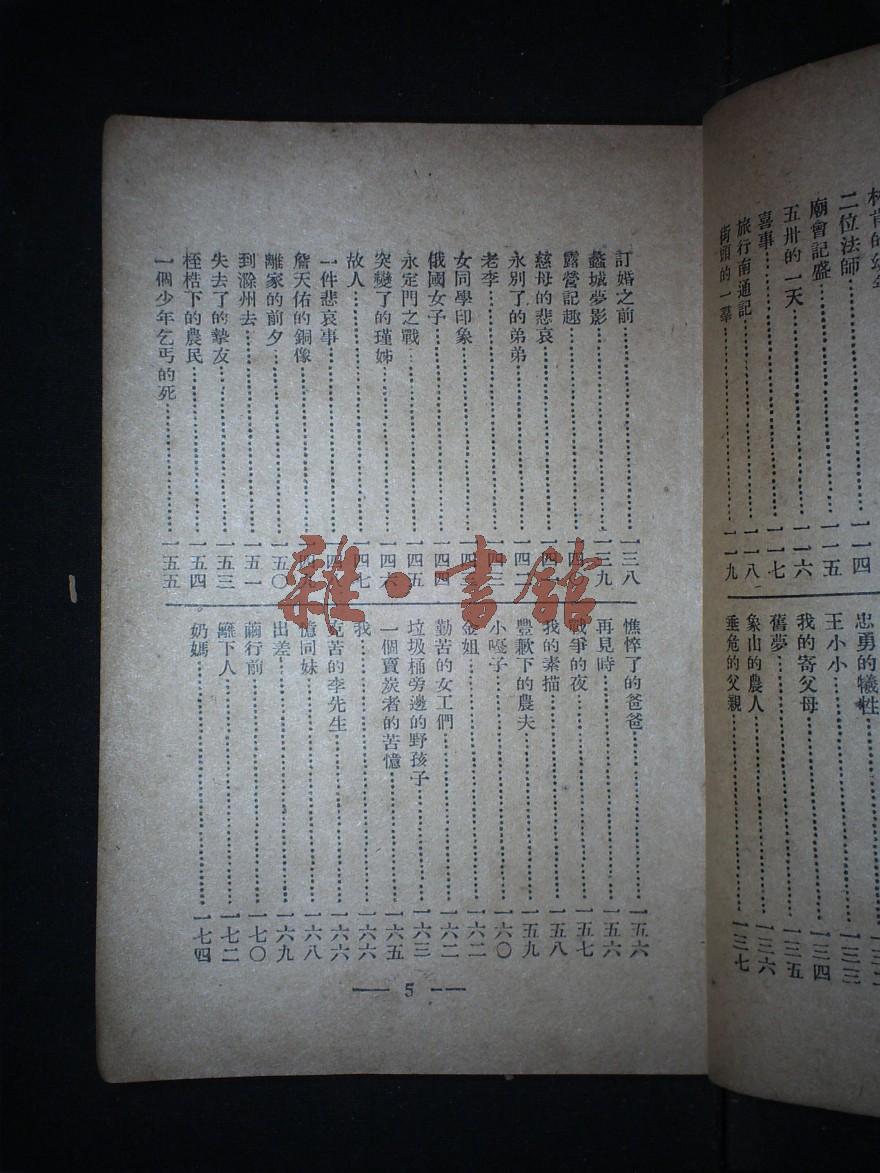 二位法師……一一四
廟會記盛……一一五
五卅的一天……一一六
喜事……一一七
旅行南通記……一一八
街頭的一羣……一一九
忠勇的犧牲……
王小小……一三三
我的寄父母……一三四
舊夢……一三五
象山的農人……一三六
垂危的父親……一三七
訂婚之前……一三八
蠡城夢影……一三九
露營記趣……
慈母的悲哀……
永別了的弟弟……一四二
老李……一四三
女同學印象……
俄國女子……一四四
永定門之戰……一四五
突變了的瑾姊……一四六
故人……一四七
一件悲哀事……
詹天佑的銅像……
離家的前夕……一五〇
到滁州去……一五一
失去了的摯友……一五三
桎梏下的農民……一五四
一個少年乞丐的死……一五五
憔悴了的爸爸……一五六
再見時……一五六
戰爭的夜……一五七
我的素描……一五八
豐歉下的農夫……一五九
小啞子……一六〇
金姐……一六二
勤苦的女工們……一六二
垃圾桶旁邊的野孩子……一六三
一個賣炭者的苦憶……一六五
我……一六六
克苦的李先生……一六六
憶同妹……一六八
出差……一六九
繭行前……一七〇
籬下人……一七二
奶媽……一七四
— 5 —
雜·書館